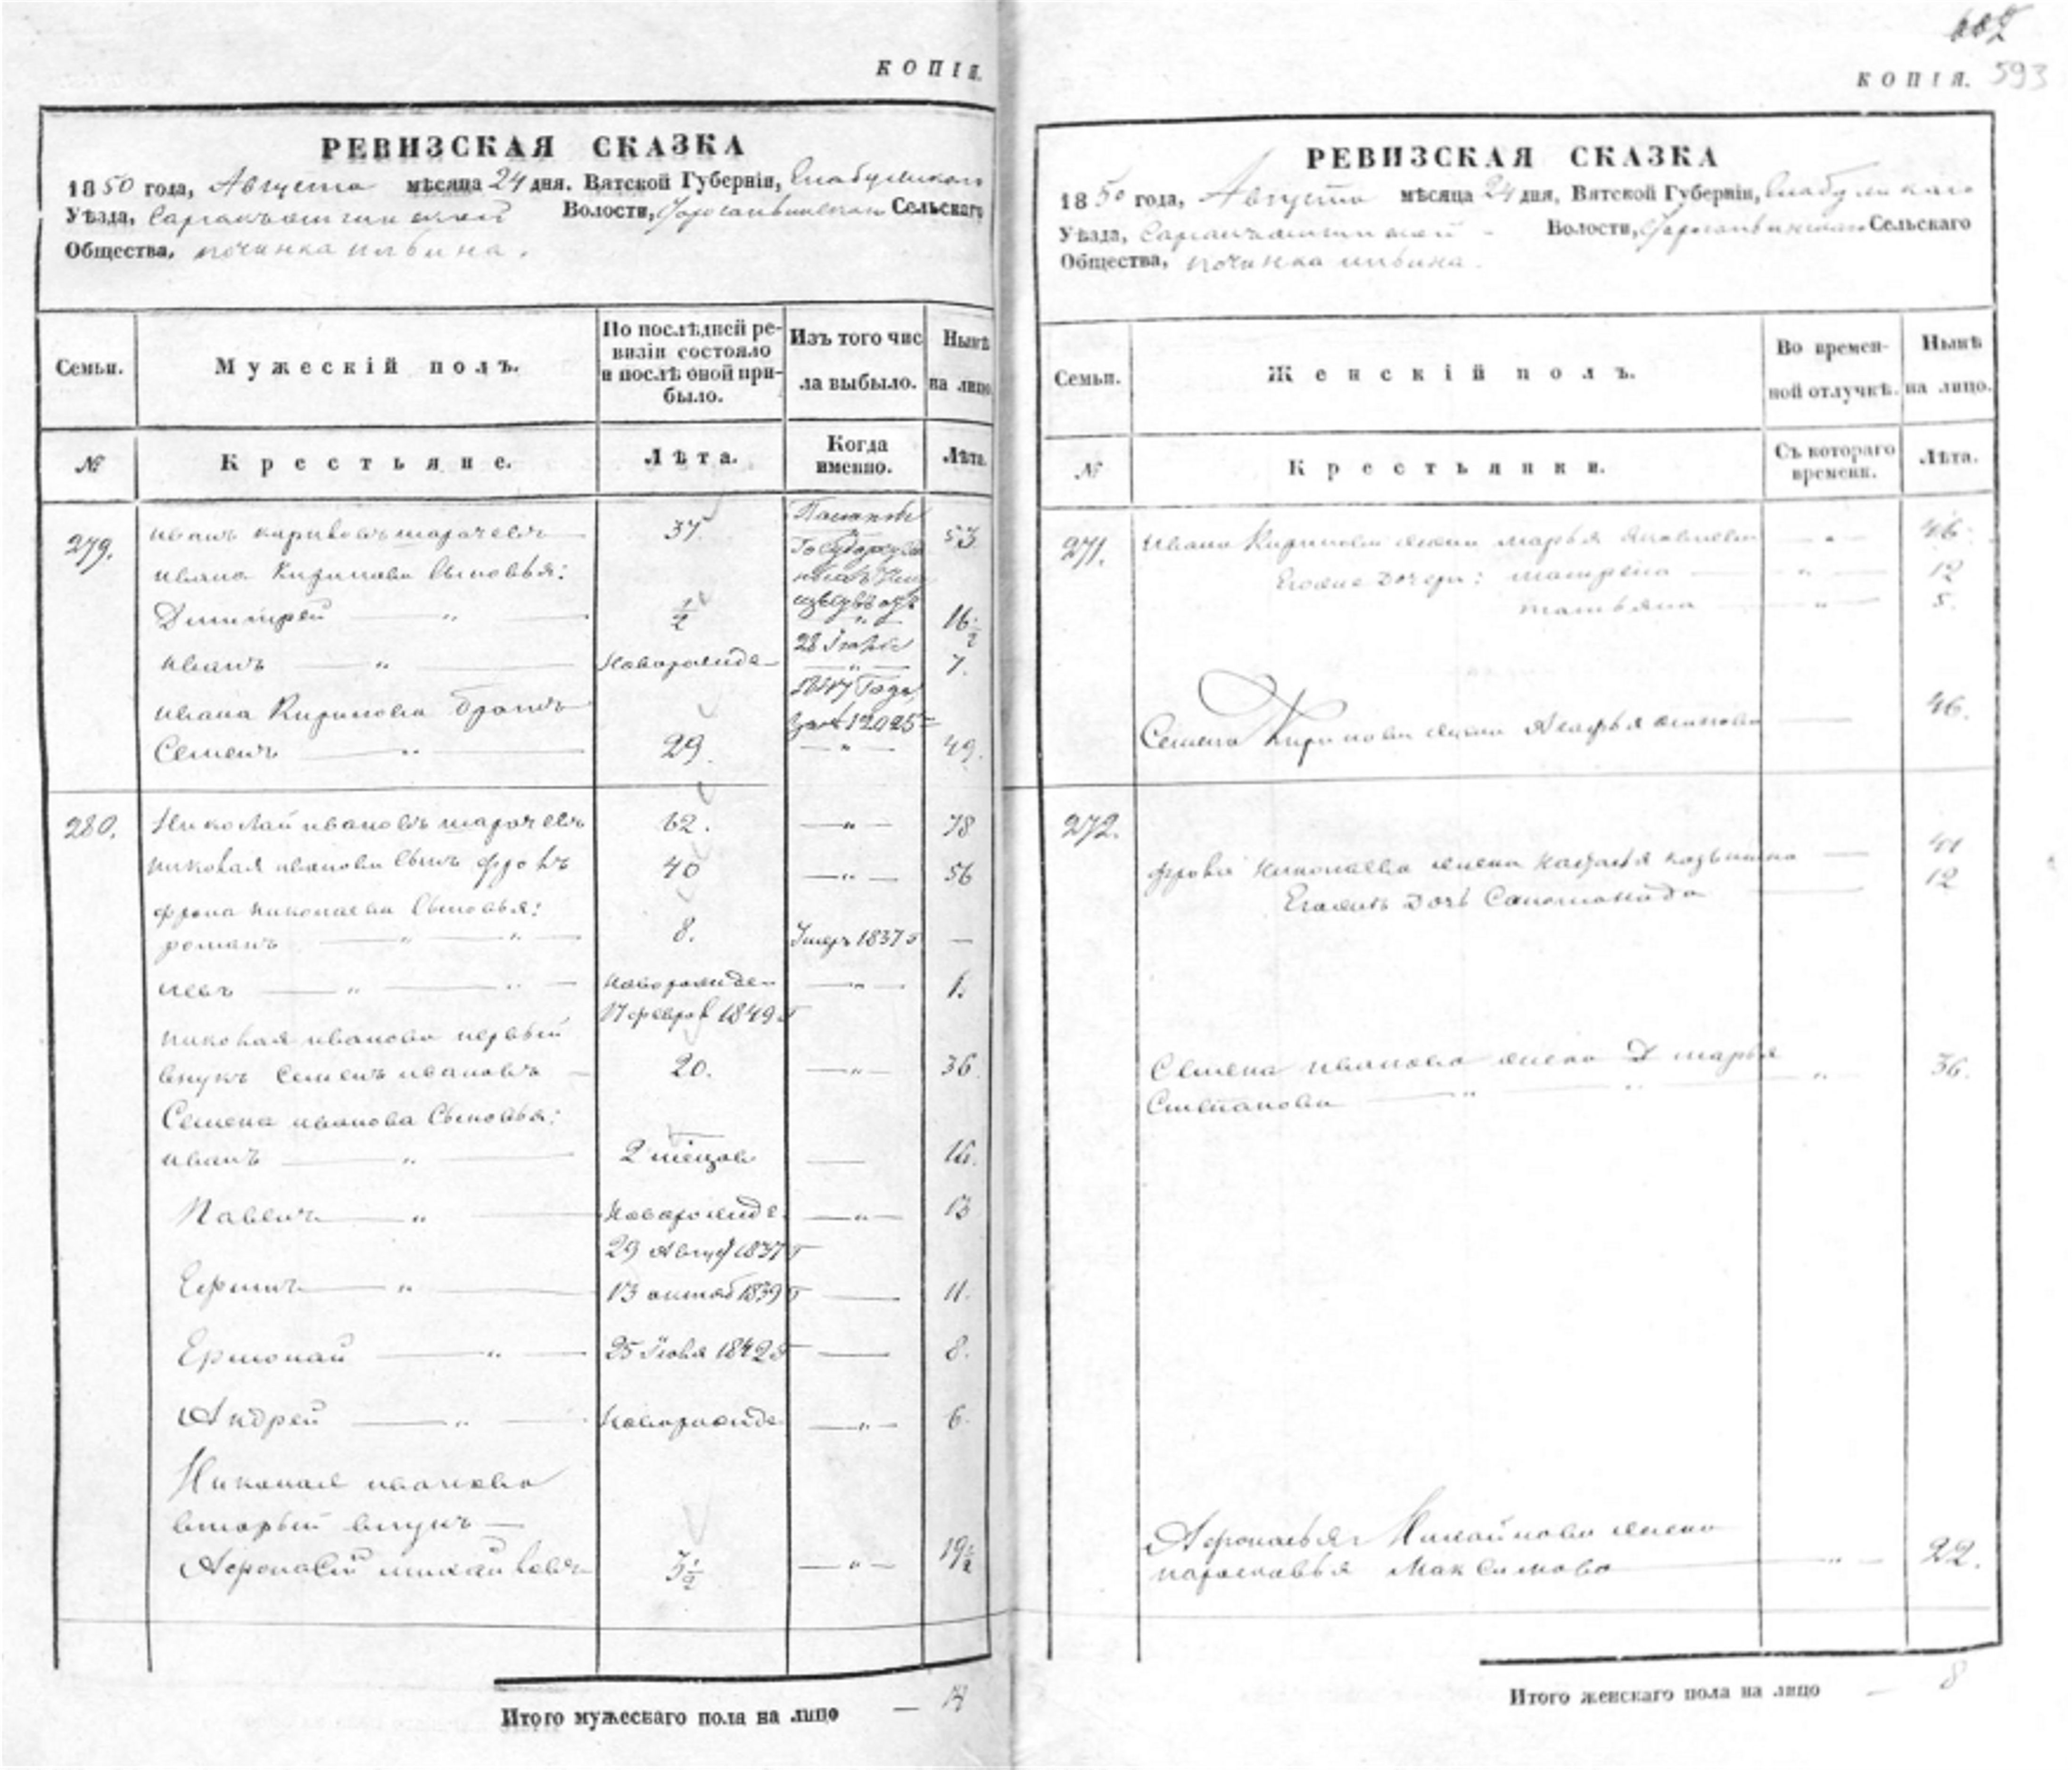 КОПІЯ.
РЕВИЗСКАЯ СКАЗКА
1850 года, Августа мѣсяца 24 дня. Вятской Губерніи, Елабужскаго
Уѣзда, Волости, Сельскаго
Общества, починка ильина.
Семьи.
Мужескій полъ.
По послѣдней ре-
визіи состояло
и послѣ оной при-
было.
Изъ того чис
ла выбыло.
Нынѣ
на лицо
№
Крестьяне.
Лѣта.
Когда
именно.
Лѣта.
279.
иванъ кириловъ 37 53
ивана Кирилова сыновья:
Димитрей „ ½ 16½
иванъ „ новорожде 7.
28
1847 Года
12025
ивана Кирилова братъ
Семенъ „ 29 „ 49.
280. Николай ивановъ 62. „ 78
николая иванова сынъ фролъ 40 „ 56
фрола николаева сыновья:
романъ „ „ 8. Умеръ 1837 г —
левъ „ „ новорожден „ 1.
17 феврал 1849 г
николая иванова первый
внукъ Семенъ ивановъ 20. „ 36.
Семена иванова сыновья:
иванъ „ 2 мѣсцов — 16.
Павелъ „ новорожде „ 13
29 Август 1837 г
Ефимъ „ 13 октяб 1839 г — 11.
Ермолай „ 25 Июля 1842 г — 8.
Андрей „ новорожде „ 6.
Николая иванова
вторый внукъ —
Афонасий михайловъ 3½ „ 19½
Итого мужескаго пола на лицо — 14
КОПІЯ. 593
РЕВИЗСКАЯ СКАЗКА
1850 года, Августа мѣсяца 24 дня, Вятской Губерніи, Елабужскаго
Уѣзда, Волости, Сельскаго
Общества, починка ильина.
Семьи.
Женскій полъ.
Во времен-
ной отлучкѣ.
Нынѣ
на лицо.
№
Крестьянки.
Съ котораго
времени.
Лѣта.
271. Ивана Кирилова жена марья яковлева „ 46.
Егоже дочери: матрена „ 12
татьяна „ 5.
Семена Кирилова жена — 46.
272.
фрола николаева жена — 41
Егожъ дочь Соломонида — 12
Семена иванова жена марья
Степанова „ „ „ 36.
Афонасья Михайлова жена
парасковья Максимова „ 22.
Итого женскаго пола на лицо — 8